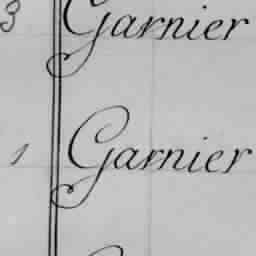 3 Garnier
1 Garnier